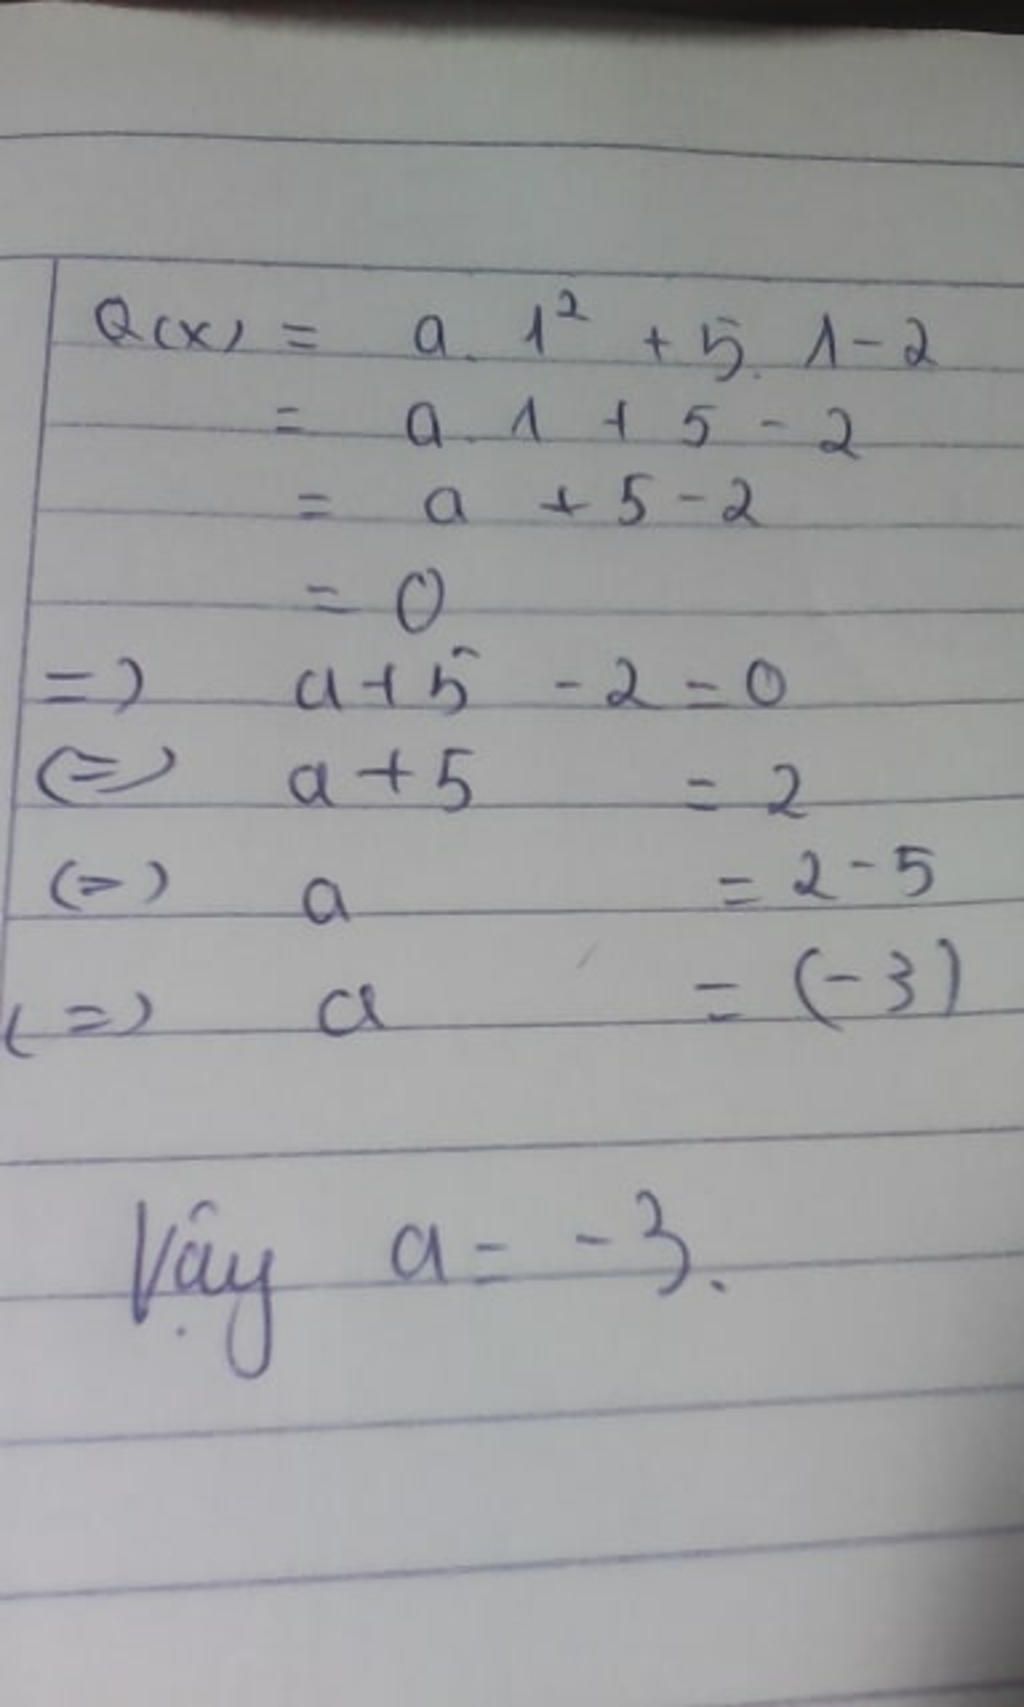 Q(x) = a. 1² + 5. 1 - 2
= a. 1 + 5 - 2
= a + 5 - 2
= 0
=) a + 5 - 2 = 0
(=) a + 5 = 2
(=) a = 2 - 5
(=) a = (-3)
Vậy a = -3.